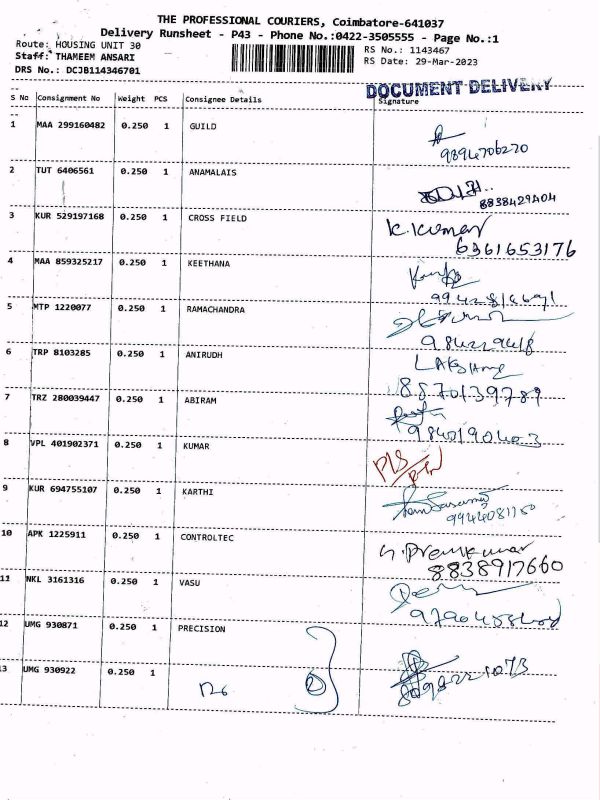 THE PROFESSIONAL COURIERS, Coimbatore-641037
Delivery Runsheet - P43 - Phone No.:0422-3505555 - Page No.:1
Route: HOUSING UNIT 30 RS No.: 1143467
Staff: THAMEEM ANSARI RS Date: 29-Mar-2023
DRS No.: DCJB114346701
DOCUMENT DELIVERY
S No Consignment No Weight PCS Consignee Details Signature
1 MAA 299160482 0.250 1 GUILD
9894706270
2 TUT 6406561 0.250 1 ANAMALAIS
8838429404
3 KUR 529197168 0.250 1 CROSS FIELD K.Kumar
6361653176
4 MAA 859325217 0.250 1 KEETHANA
5 MTP 1220077 0.250 1 RAMACHANDRA
6 TRP 8103285 0.250 1 ANIRUDH
8870139789
7 TRZ 280039447 0.250 1 ABIRAM
9840190403
8 VPL 401902371 0.250 1 KUMAR
9 KUR 694755107 0.250 1 KARTHI
9944081150
10 APK 1225911 0.250 1 CONTROLTEC Premkumar
8838917660
11 NKL 3161316 0.250 1 VASU
12 UMG 930871 0.250 1 PRECISION
13 UMG 930922 0.250 1